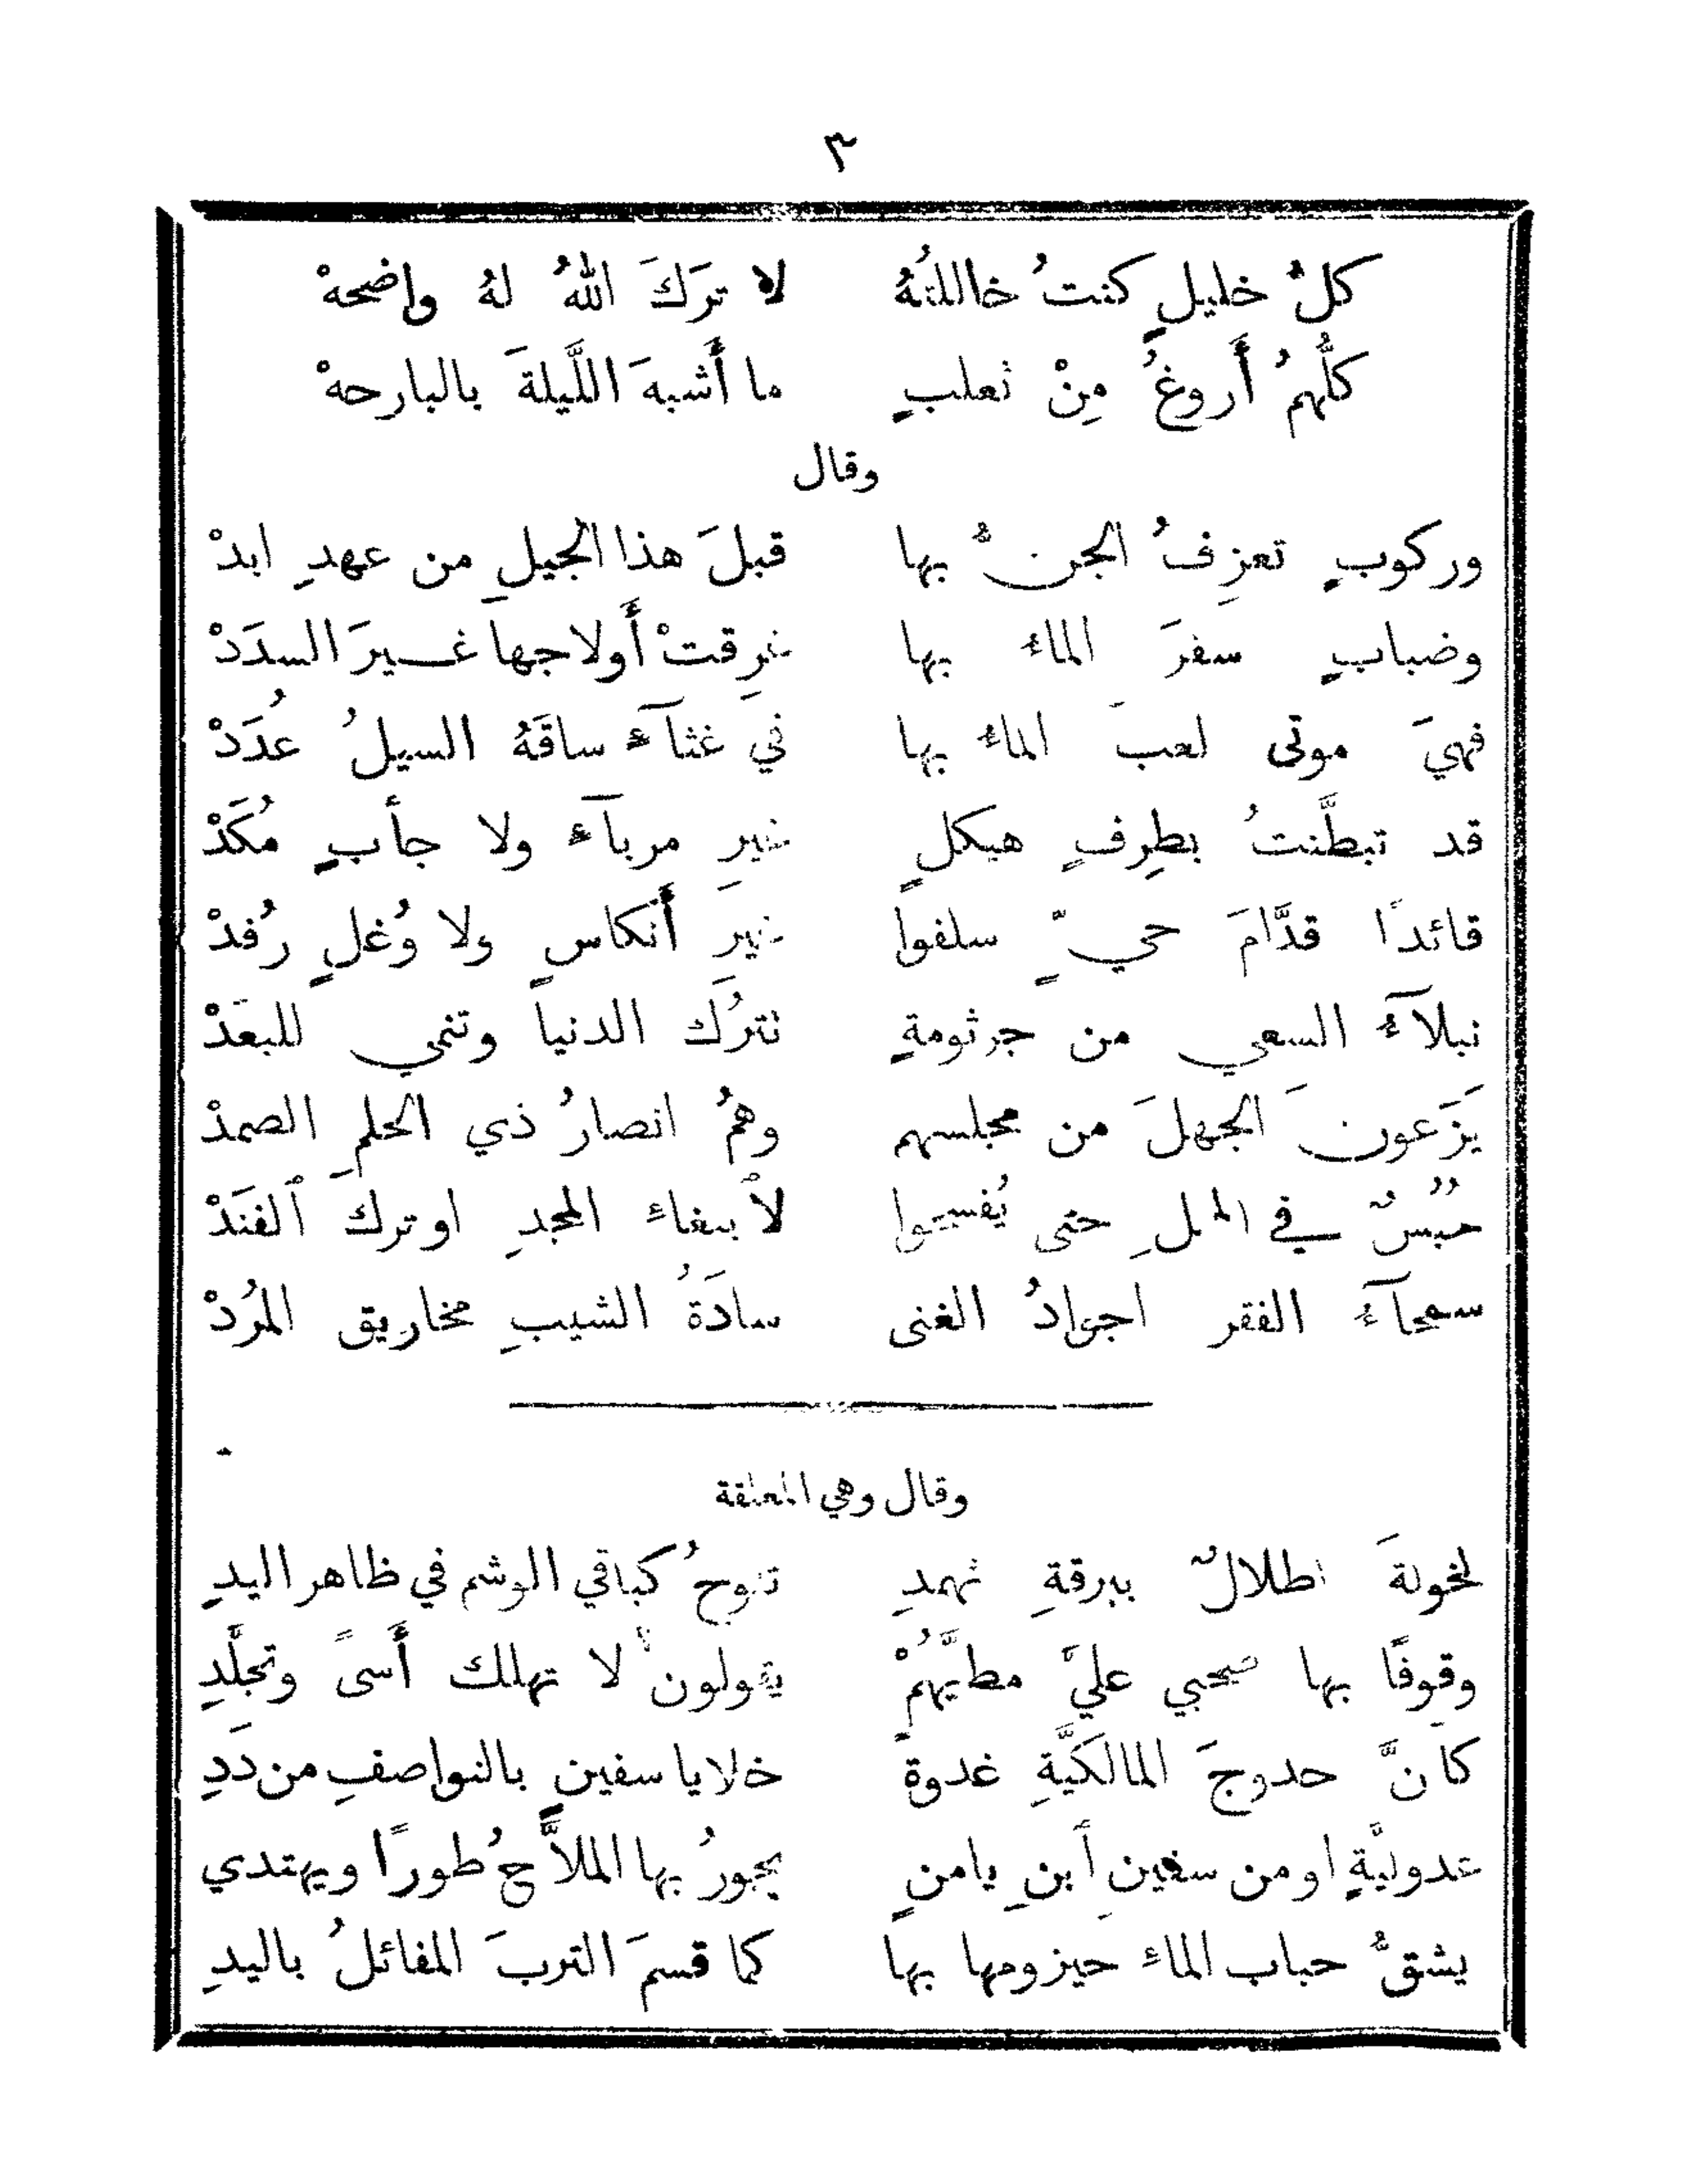 ٣
كلُّ خليلٍ كنتُ خاللتُهُ لا ترَكَ اللهُ لهُ واضحهْ
كلُّهمُ أَروغُ مِنْ ثعلبٍ ما أَشبهَ اللَّيلةَ بالبارحهْ
وقال
وركوبٍ تعزِفُ الجنُّ بها قبلَ هذا الجيلِ من عهدِ ابدْ
وضبابٍ سفرَ الماءُ بها غرِقتْ أَولاجها غيرَ السدَدْ
فهيَ موتى لعبَ الماءُ بها في غثآءٍ ساقَهُ السيلُ عُدَدْ
قد تبطَّنتُ بطِرفٍ هيكلٍ غيرِ مربآءٍ ولا جأبٍ مُكَدْ
قائدًا قدَّامَ حيٍّ سلفوا غيرَ أَنكاسٍ ولا وُغلٍ رُفدْ
نبلآءُ السعي من جرثومةٍ نترُك الدنيا وتنمي للبعَدْ
يَزَعونَ الجهلَ من مجلسهم وهمُ انصارُ ذي الحلمِ الصمدْ
حبُسٌ في المـلِ حتى يُفسحوا لأبتغاءِ المجدِ او تركَ ٱلفندْ
سمحآءُ الفقر اجوادُ الغنى سادَةُ الشيبِ مخاريق المُردْ
وقال وهي المعلقة
لخولةَ اطلالٌ ببرقةِ ثهمدِ تلوحُ كباقي الوشم في ظاهر اليدِ
وقوفًا بها صحبي عليَّ مطيَّهُمْ يقولون لا تهلك أَسىً وتجلَّدِ
كأنَّ حدوجَ المالكيَّةِ غدوةً خلايا سفينٍ بالنواصفِ من دَدِ
عدوليَّةٍ او من سفين أبنِ يامنٍ يجورُ بها الملاَّحُ طورًا ويهتدي
يشقُّ حباب الماءِ حيزومها بها كما قسمَ التربَ المفائلُ باليدِ